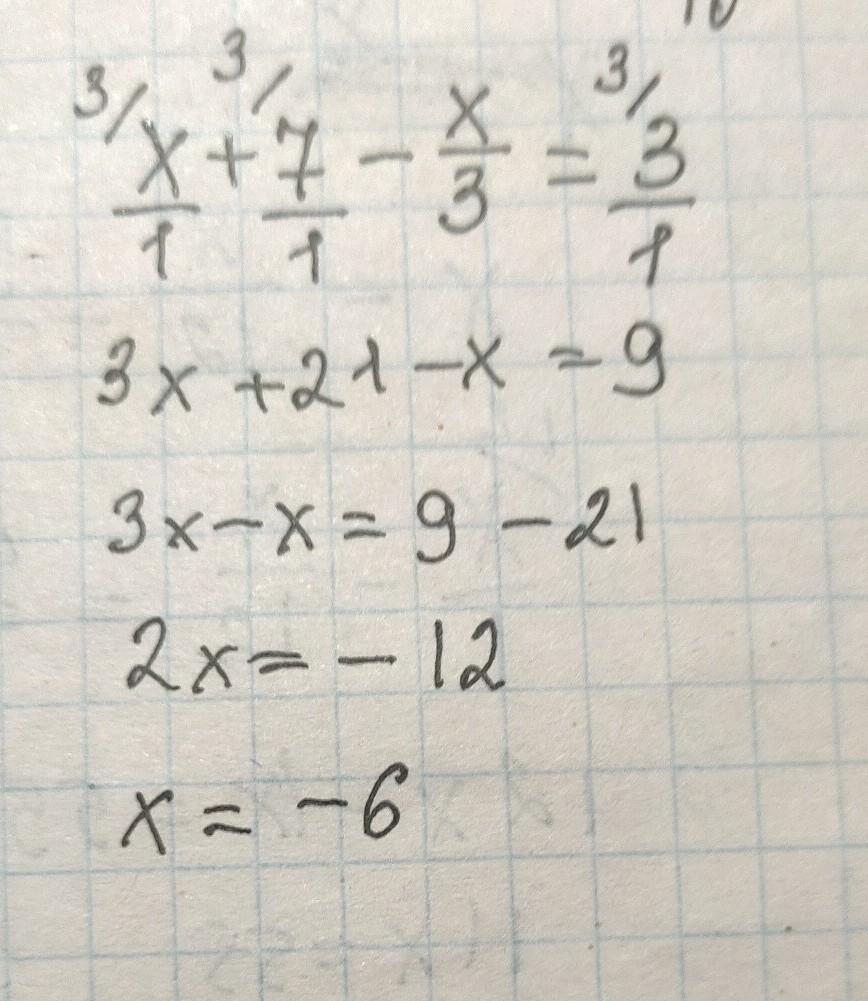 3/ 3/ 3/
x/1 + 7/1 - x/3 = 3/1
3x + 21 - x = 9
3x - x = 9 - 21
2x = - 12
x = - 6